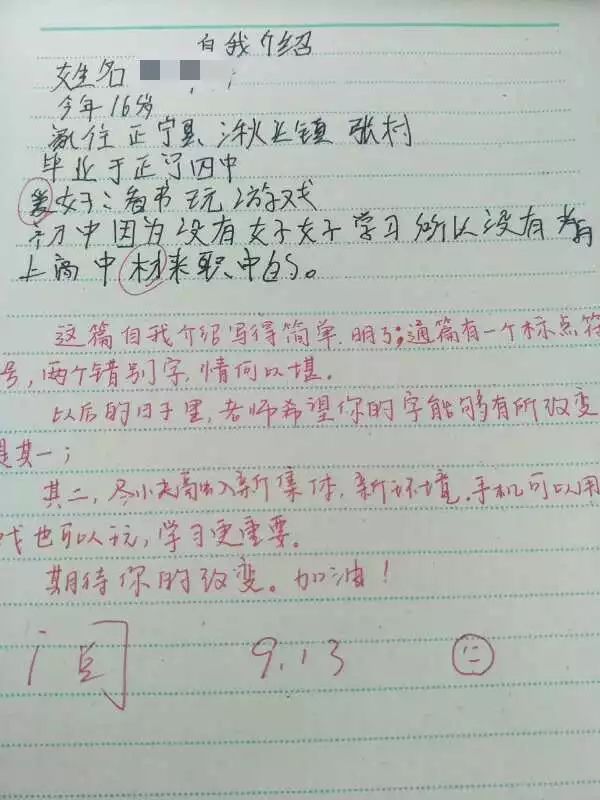 自我介绍
姓名
今年16岁
家住正宁县湫头镇张村
毕业于正宁四中
爱好:看书玩游戏
初中因为没有好好学习所以没有考
上高中材来职中的。
这篇自我介绍写得简单明了;通篇有一个标点符
号,两个错别字,情何以堪。
以后的日子里,老师希望你的字能够有所改变
是其一;
其二,尽小夫高出入新集体,新环境。手机可以用
戏也可以玩,学习更重要。
期待你的改变。加油!
阅 9.13